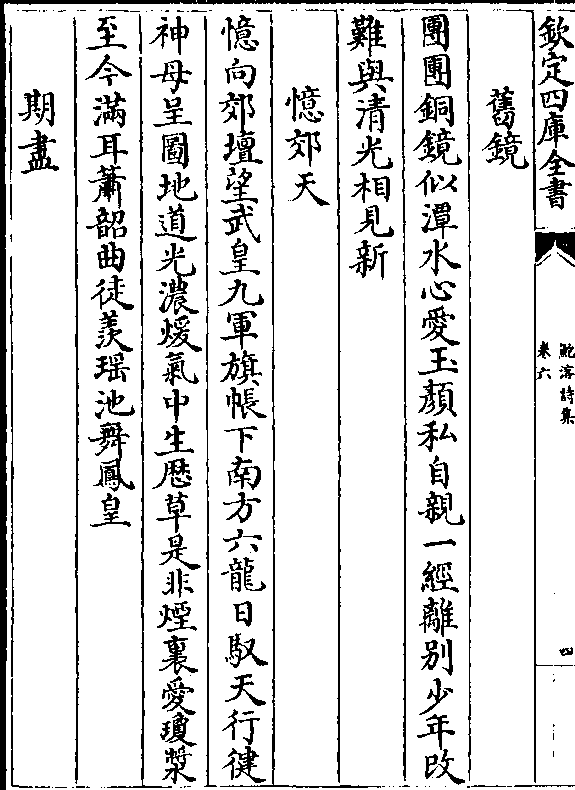 欽定四庫全書
鮑溶詩集
卷六
四
舊鏡
團團銅鏡似潭水心愛玉顏私自親一經離別少年改
難與清光相見新
憶郊天
憶向郊壇望武皇九軍旗帳下南方六龍日馭天行健
神母呈圖地道光濃煖氣中生歴草是非煙裏愛瓊漿
至今滿耳簫韶曲徒羡瑶池舞鳳皇
期盡